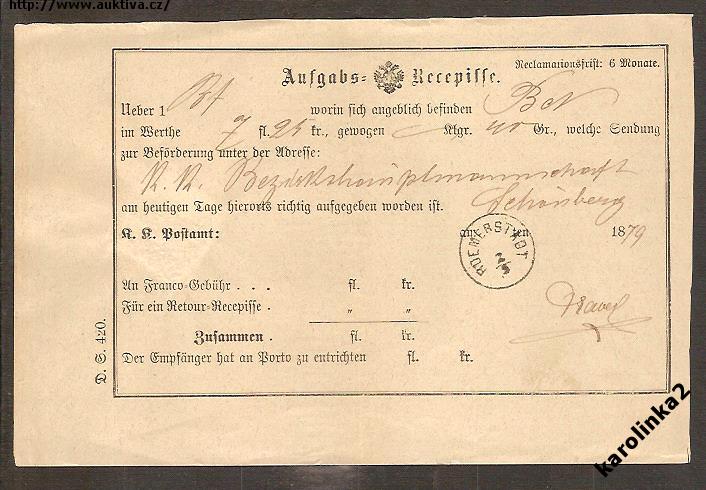 http://www.auktiva.cz/
Aufgabs- Recepisse.
Reclamationsfrist: 6 Monate.
Ueber 1 Bf worin sich angeblich befinden
im Werthe 7 fl. 25 kr., gewogen Klgr. Gr., welche Sendung
zur Beförderung unter der Adresse:
K. K. Bezirkshauptmannschaft
Schönberg
am heutigen Tage hierorts richtig aufgegeben worden ist.
K. K. Postamt: am ten 1879
ROEMERSTADT
An Franco-Gebühr . . . fl. kr.
Für ein Retour-Recepisse . " "
Zusammen . fl. kr.
Der Empfänger hat an Porto zu entrichten fl. kr.
D. S. 420.
karolinka2